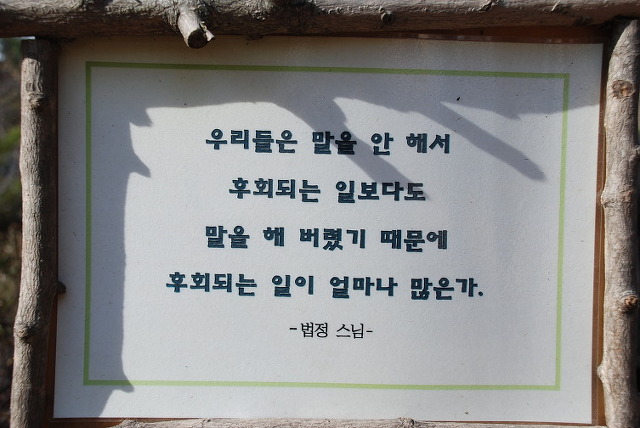 우리들은 말을 안 해서
후회되는 일보다도
말을 해 버렸기 때문에
후회되는 일이 얼마나 많은가.
-법정 스님-